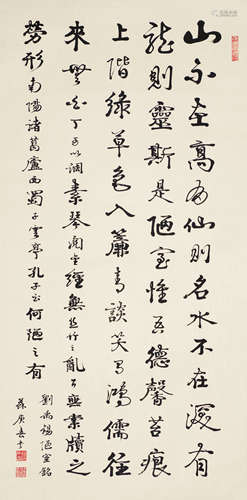 山不在高有仙則名水不在深有
龍則靈斯是陋室惟吾德馨苔痕
上階綠草色入簾青談笑有鴻儒往
來無白丁可以調素琴閱金經無絲竹之亂耳無案牘之
勞形南陽諸葛廬西蜀子雲亭孔子云何陋之有
劉禹錫陋室銘
蘇庚春書